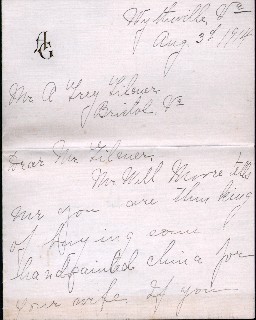 AG
Wytheville, Va
Aug. 3d 1914
Mr A Grey Gilmer
Bristol Va
Dear Mr. Gilmer,
Mr Will Moore tells
me you are thinking
of buying some
handpainted china for
your wife. If you